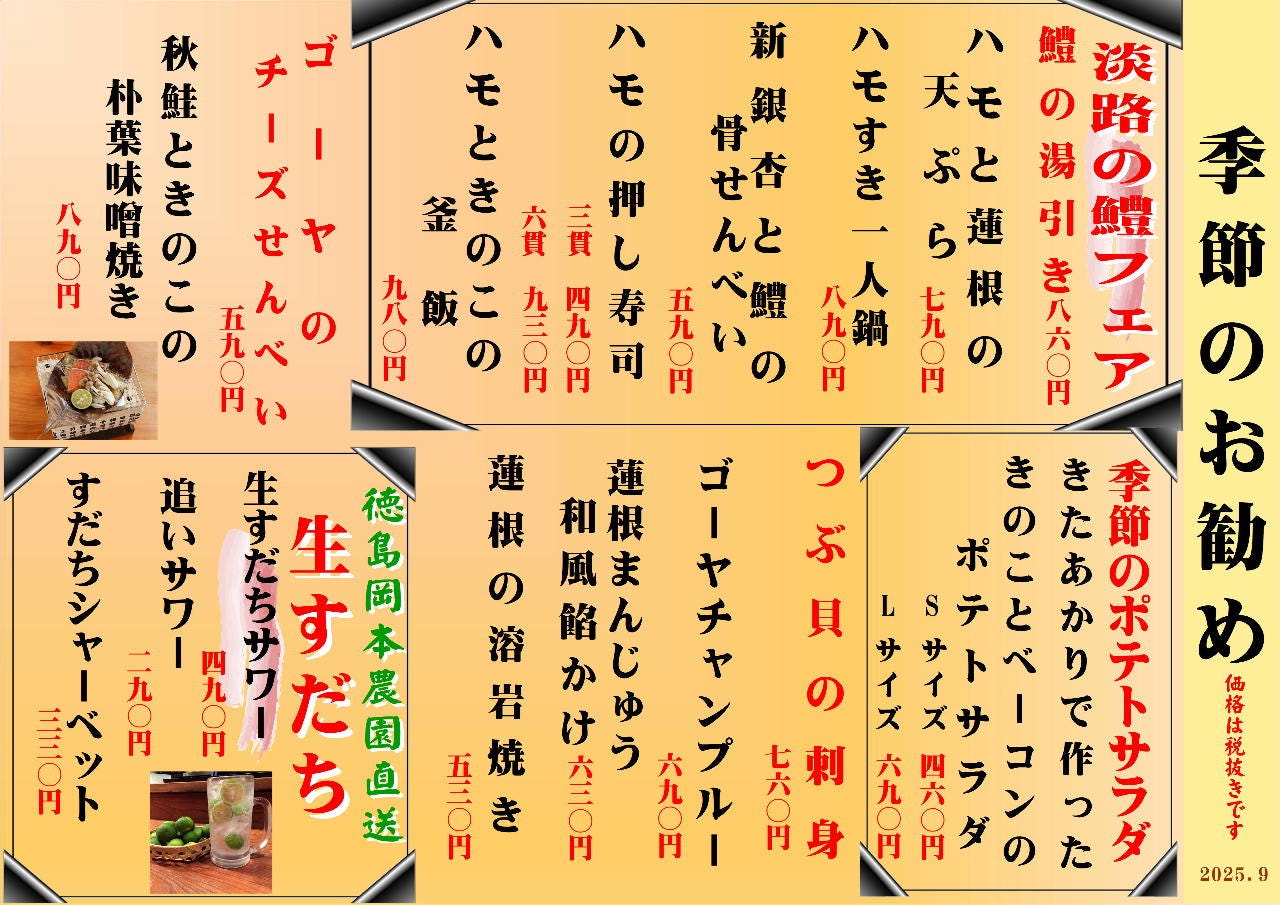 季節のお勧め
価格は税抜きです
2025.9
淡路の鱧フェア
鱧の湯引き
八六〇円
ハモと蓮根の
天ぷら
七九〇円
ハモすき一人鍋
八九〇円
新銀杏と鱧の
骨せんべい
五九〇円
ハモの押し寿司
三貫 四九〇円
六貫 九三〇円
ハモときのこの
釜飯
九八〇円
ゴーヤの
チーズせんべい
五九〇円
秋鮭ときのこの
朴葉味噌焼き
八九〇円
季節のポテトサラダ
きたあかりで作った
きのことベーコンの
ポテトサラダ
Sサイズ 四六〇円
Lサイズ 六九〇円
つぶ貝の刺身
七六〇円
ゴーヤチャンプルー
六九〇円
蓮根まんじゅう
和風餡かけ
六三〇円
蓮根の溶岩焼き
五三〇円
徳島岡本農園直送
生すだち
生すだちサワー
四九〇円
追いサワー
二九〇円
すだちシャーベット
三三〇円